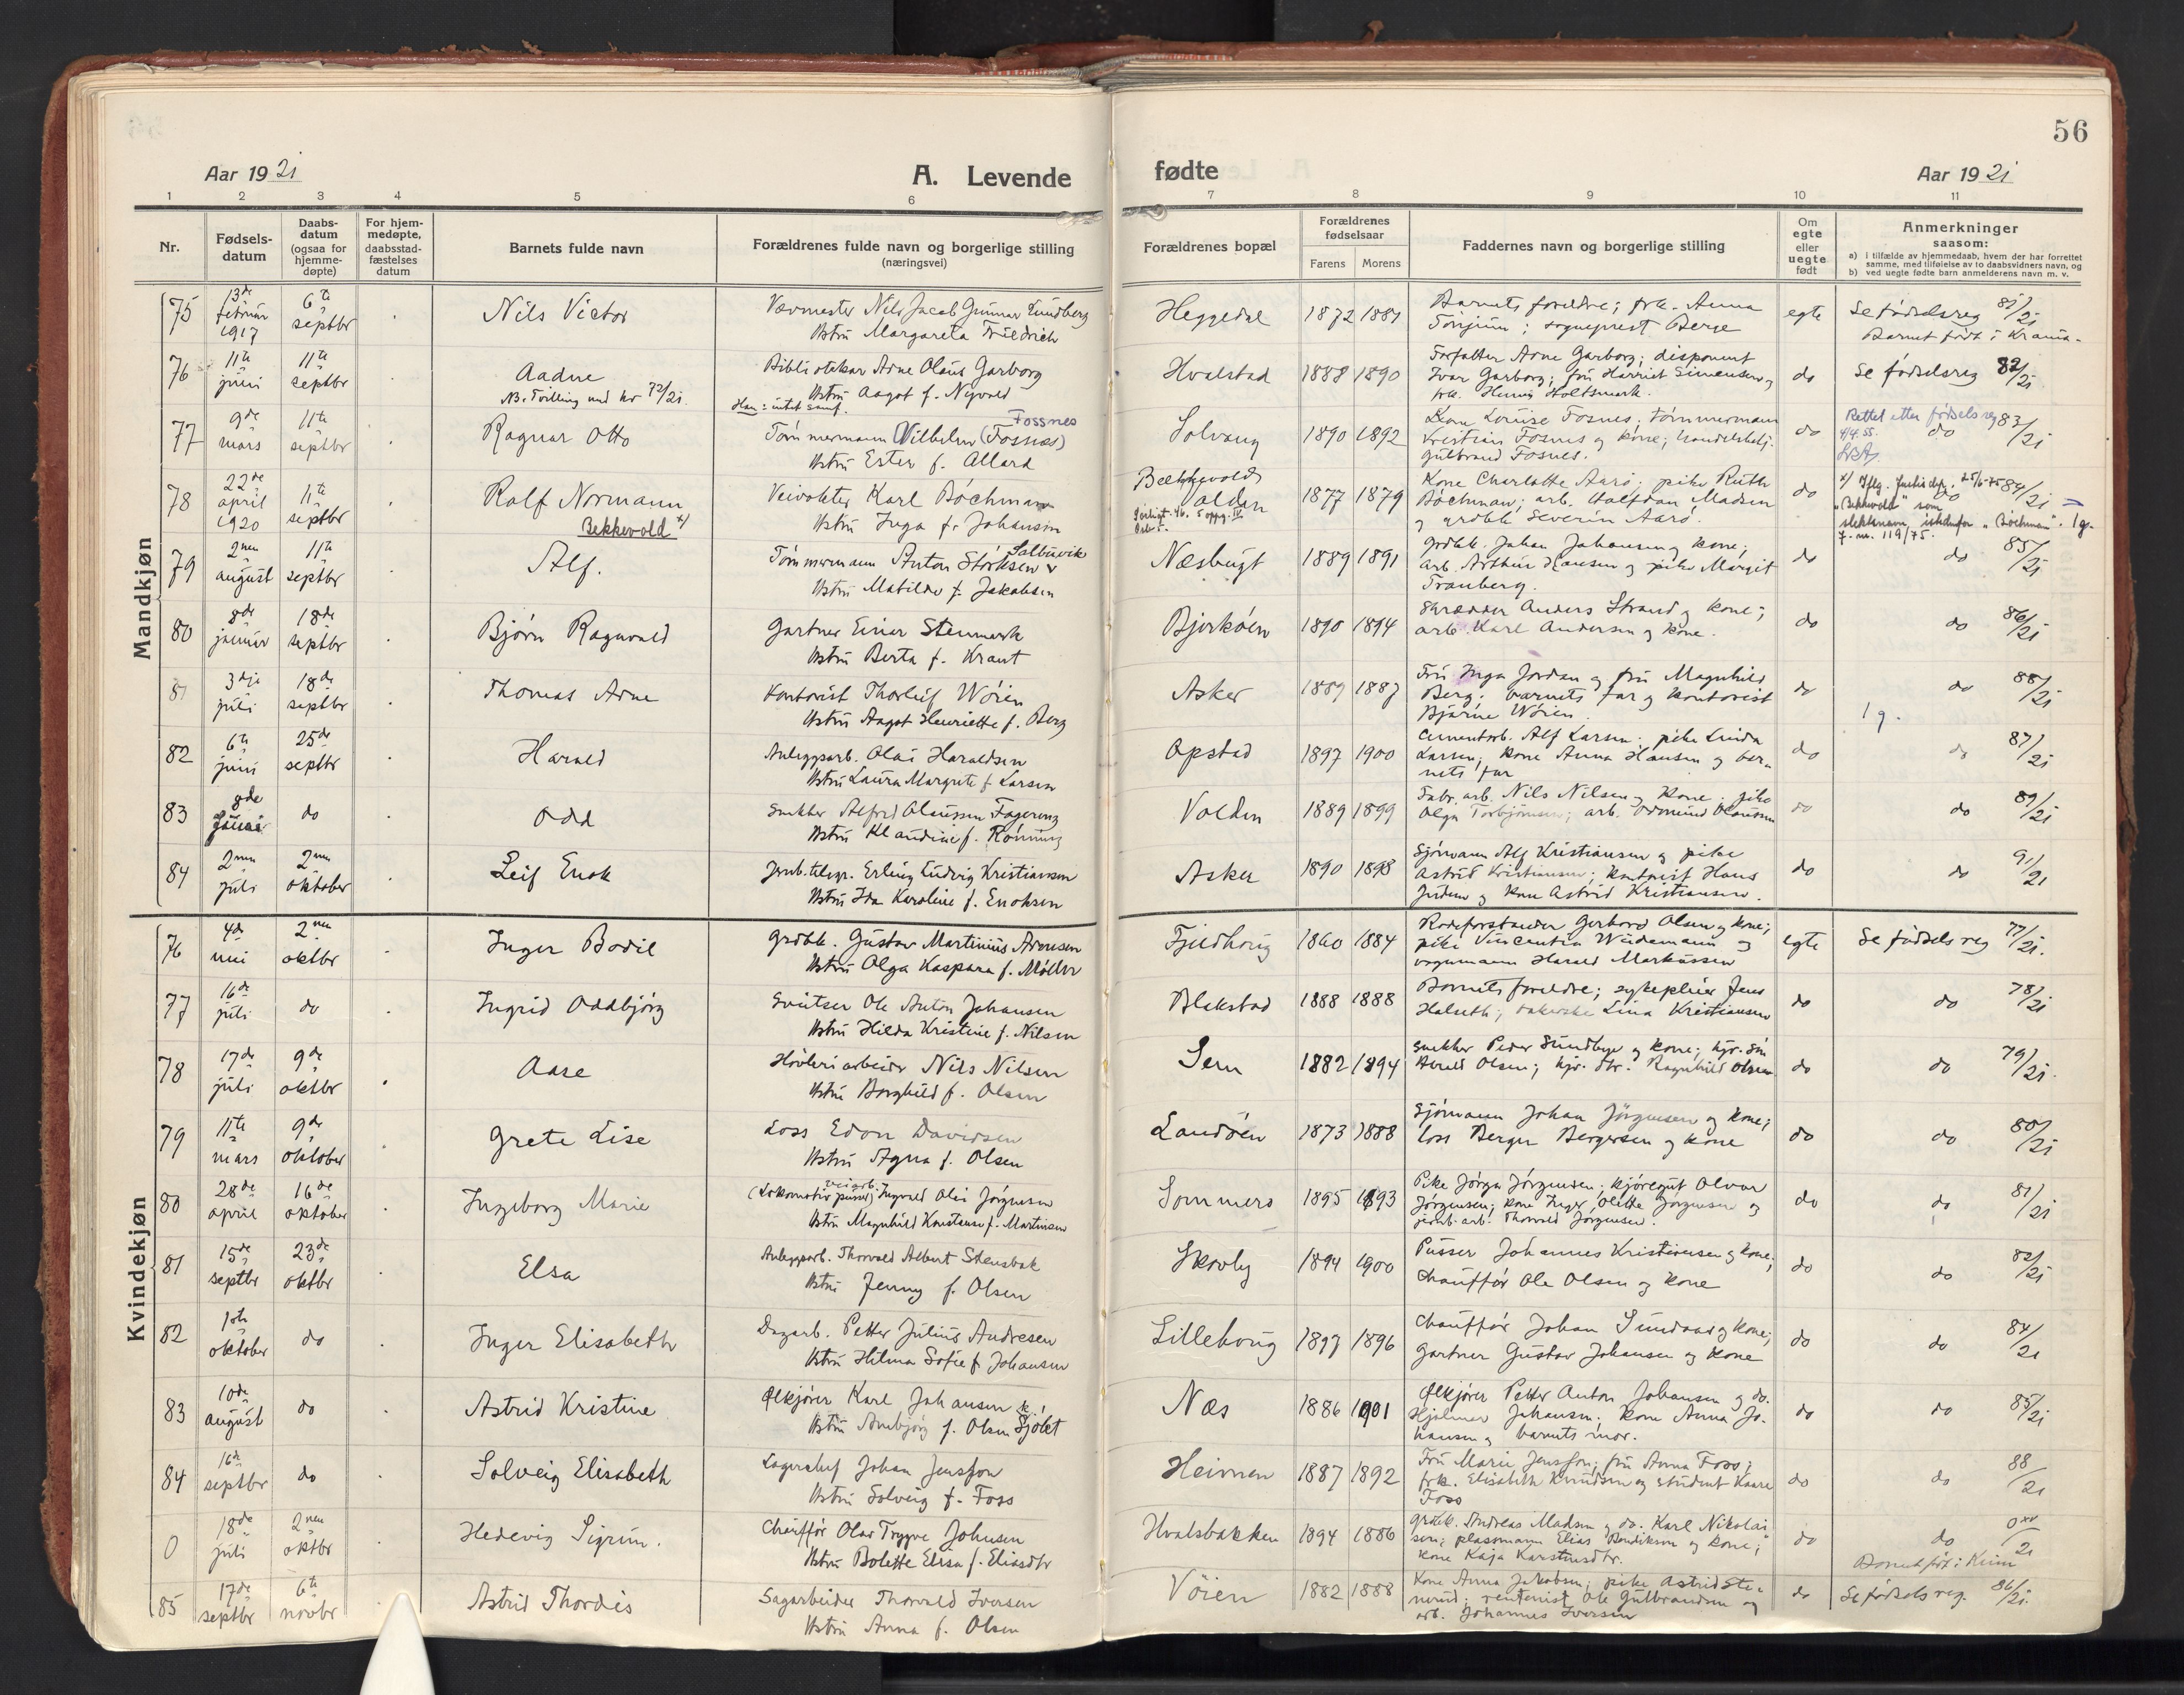 56
Aar 1921
A. Levende
fødte
Aar 1921
1 2 3 4 5 6 7 8 9 10 11
Nr.
Fødsels-
datum
Daabs-
datum
(ogsaa for
hjemme-
døpte)
For hjem-
medøpte,
daabsstad-
fæstelses
datum
Barnets fulde navn
Forældrenes fulde navn og borgerlige stilling
(næringsvei)
Forældrenes bopæl
Forældrenes
fødselsaar
Farens Morens
Faddernes navn og borgerlige stilling
Om
egte
eller
uegte
født
Anmerkninger
saasom:
a) i tilfælde av hjemmedaab, hvem der har forrettet
samme, med tilføielse av to daabsvidners navn, og
b) ved uegte fødte barn anmelderens navn m. v.
Mandkjøn
75 13de februar 1917 6te septbr Nils Victor
Vævmester Nils Jacob Gunnar Lundberg
Hstru Margareta Friedrich
Heggedal 1872 1881
Barnets forældre; frk. Anna
Tönjum; sogneprest Berge
egte Se fødselsreg 81/21
Barnet født i Krania.
76 11te juni 11te septbr Aadne
NB. Tvilling med nr 72/21.
Bibliotekar Arne Olaus Garborg
Hstru Aagot f. Nyvold
Han: intet samf.
Hvalstad 1888 1890
Forfatter Arne Garborg; disponent
Ivar Garborg; fru Harriet Simensen og
frk. Henny Holtsmark.
do Se fødselsreg 82/21
77 9de mars 11te septbr Ragnar Otto
Fossnes
Tømmermann Vilhelm (Fosnæs)
Hstru Ester f. Allard
Solvang 1890 1892
Kone Louise Fosnes; tømmermann
Kristian Fosnes og kone; handelsbetj.
Gulbrand Fosnes.
do Rettet etter fødselsreg
4/4 55. do 83/21
78 22de april 1920 11te septbr Rolf Normann
Bekkevold x)
Veivokter Karl Bøchmann
Hstru Inga f. Johansen
1877 1879
Kone Charlotte Aarø; pike Ruth
Bøchman; arb. Halfdan Madsen
og grdbr Severin Aarø.
do x) Iflg. Justisdep. 25/6-75 84/21
"Bekkevold" som
slektsnavn, istedenfor "Bøchman". Ig.
J. nr. 119/75.
79 2nen august 11te septbr Alf.
Salbuvik
Tømmermann Anton Størksen
Hstru Matilde f. Jakobsen
Næsbugt 1889 1891
Grdbr. Johan Johansen og kone;
arb. Arthur Hansen og pike Margit
Tranberg.
do do 85/21
80 8de januar 18de septbr Bjørn Ragnvald
Gartner Einar Stenmark
Hstru Berta f. Kraut
Bjerkøen 1890 1894
Skrædder Anders Strand og kone;
arb. Karl Andersen og kone.
do do 86/21
81 3dje juli 18de septbr Thomas Arne
Kontorist Thorleif Wøien
Hstru Aagot Henriette f. Berg
Asker 1889 1887
Fru Inga Jordan og fru Magnhild
Berg; barnets far og kontorist
Bjarne Wøien.
do do 88/21
Ig.
82 6te juni 25de septbr Harald
Anleggsarb. Olai Haraldsen
Hstru Laura Margrete f. Larsen
Opstad 1897 1900
Cementarb. Alf Larsen; pike Linda
Larsen; kone Anna Hansen og bar-
nets far
do do 87/21
83 8de januar do Odd
Snekker Alfred Olaussen Fagereng
Hstru Klaudine f. Rønning
Volden 1889 1899
Fabr. arb. Nils Nilsen og kone; pike
Olga Torbjørnsen; arb. Odmund Olaussen
do do 89/21
84 2nen juli 2nen oktober Leif Enok
Jernb.telegr. Erling Ludvig Kristiansen
Hstru Ida Karoline f. Enoksen
Asker 1890 1898
Sjømann Alf Kristiansen og pike
Astrid Kristiansen; kontorist Hans
Juden og kone Astrid Kristiansen.
do do 91/21
Kvindekjøn
76 4de mai 2nen oktbr Inger Bodil
Grdbr. Gustav Martinius Arnesen
Hstru Olga Kaspara f. Møller
Fjeldhoug 1860 1884
Rodeforstander Gerhard Olsen og kone;
pike Vincentia Wiedemann og
vognmann Harald Markussen
egte Se fødselsreg 77/21.
77 16de juli do Ingrid Oddbjørg
Sveitser Ole Anton Johansen
Hstru Hilda Kristine f. Nilsen
Blakstad 1888 1888
Barnets forældre; sykepleier Jens
Halseth; Lina Kristiansen
do do 78/21
78 17de juli 9de oktbr Aase
Høvleriarbeider Nils Nilsen
Hstru Borghild f. Olsen
Sem 1882 1894
Snekker Peder Sundbye og kone; kjr. søn
Harald Olsen; kjr. dtr. Ragnhild Olsen
do do 79/21.
79 11te mars 9de oktober Grete Lise
Loss Edon Davidsen
Hstru Agna f. Olsen
Landøen 1873 1888
Sjømann Johan Jørgensen og kone;
loss Berger Bergersen og kone
do do 80/21
80 28de april 16de oktober Ingeborg Marie
veiarb.
(Lokomotivpusser) Ingvald Olai Jørgensen
Hstru Magnhild Konstanse f. Martinsen
Sommero 1895 1893
Pike Jørga Jørgensen; kjøregut Olvar
Jørgensen; kone Inger Olette Jørgensen og
jernb. arb. Thorvald Jørgensen.
do do 81/21
81 15de septbr 23de oktbr Elsa
Anleggsarb. Thorvald Albert Stensbak
Hstru Jenny f. Olsen
Skovly 1894 1900
Pusser Johannes Kristiansen og kone;
chauffør Ole Olsen og kone
do do 82/21
82 1ste oktober do Inger Elisabeth
Dagarb. Petter Julius Andresen
Hstru Hilma Sofie f. Johansen
Lilleboug 1897 1896
Chauffør Johan Sundaas og kone;
gartner Gustav Johansen og kone
do do 84/21
83 10de august do Astrid Kristine
Ølkjører Karl Johansen
Hstru Annbjørg f. Olsen Sjølet
Næs 1886 1901
Ølkjører Petter Anton Johansen og do.
Hjalmar Johansen; kone Anna Jo-
hansen og barnets mor.
do do 85/21
84 16de septbr do Solveig Elisabeth
Lagerchef Johan Jensson
Hstru Solveig f. Foss
Heimen 1887 1892
Fru Marie Jensson; fru Anna Foss;
frk. Elisabeth Knudsen og student Kaare
Foss
do do 88/21
0 18de juli 2nen oktbr Hedevig Sigrun.
Chauffør Olav Trygve Johnsen
Hstru Bolette Elisa f. Eliasdtr
Hvalsbakken 1894 1886
Grdbr. Andreas Madsen og do. Karl Nikolai-
sen; plassmann Elias Bendiksen og kone;
kone Kaja Karstensdtr.
do do 0/21
85 17de septbr 6te novbr Astrid Thordis
Sagarbeider Thorvald Iversen
Hstru Anna f. Olsen
Vöien 1882 1888
Kone Anna Jakobsen; pike Astrid Ste-
nerud; rentenist Ole Gulbrandsen og
arb. Johannes Iversen
do Se fødselsreg. 86/21.